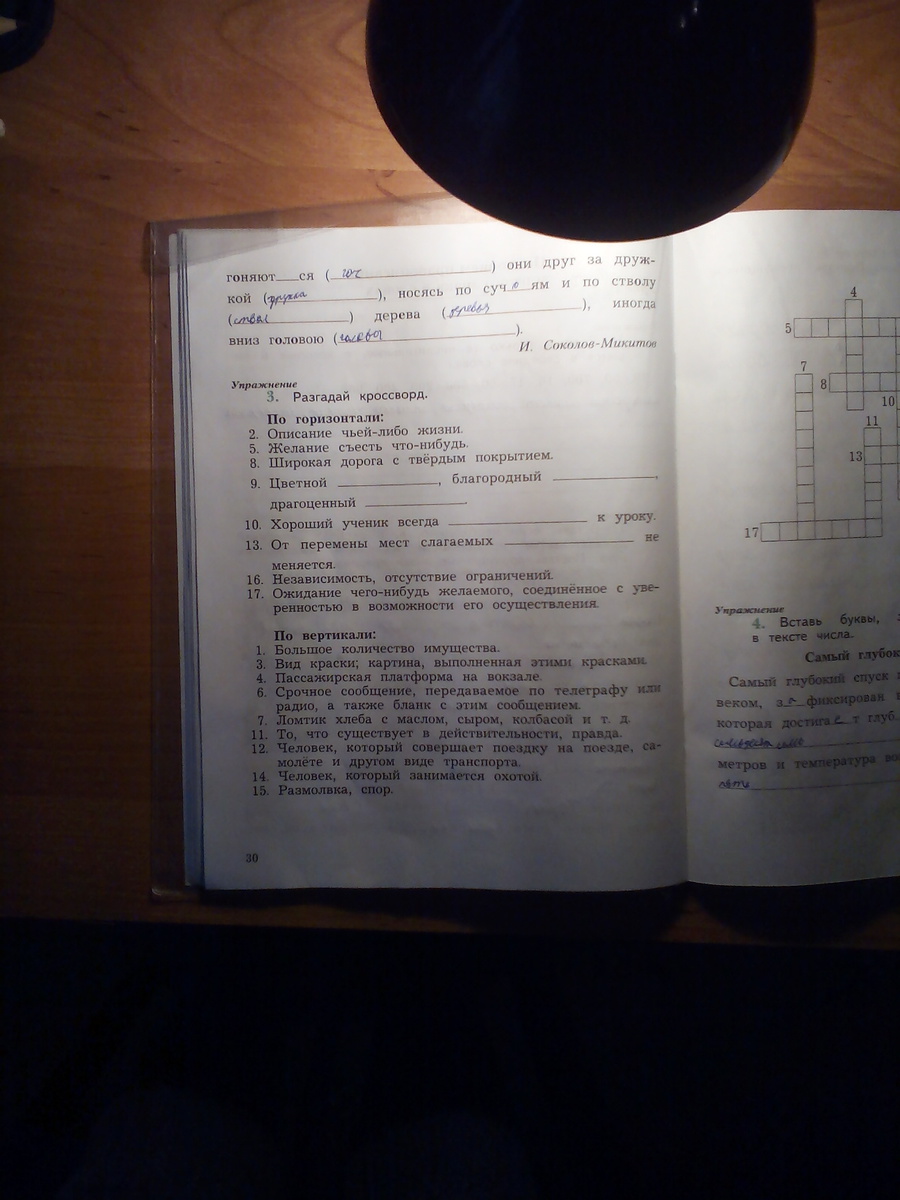 гоняют__ся (гоч__________) они друг за друж-
кой (дружка________), носясь по суч_о_ям и по стволу
(ствол________) дерева (деревья________), иногда
вниз головою (____________).
И. Соколов-Микитов
Упражнение
3. Разгадай кроссворд.
По горизонтали:
2. Описание чьей-либо жизни.
5. Желание съесть что-нибудь.
8. Широкая дорога с твёрдым покрытием.
9. Цветной ____________, благородный ____________,
драгоценный ____________.
10. Хороший ученик всегда ____________ к уроку.
13. От перемены мест слагаемых ____________ не
меняется.
16. Независимость, отсутствие ограничений.
17. Ожидание чего-нибудь желаемого, соединённое с уве-
ренностью в возможности его осуществления.
По вертикали:
1. Большое количество имущества.
3. Вид краски; картина, выполненная этими красками.
4. Пассажирская платформа на вокзале.
6. Срочное сообщение, передаваемое по телеграфу или
радио, а также бланк с этим сообщением.
7. Ломтик хлеба с маслом, сыром, колбасой и т. д.
11. То, что существует в действительности, правда.
12. Человек, который совершает поездку на поезде, са-
молёте и другом виде транспорта.
14. Человек, который занимается охотой.
15. Размолвка, спор.
30
4
5
7
8
10
11
13
17
Упражнение
4. Вставь буквы,
в тексте числа.
Самый глубок
Самый глубокий спуск
веком, з_а_фиксирован
которая достига_е_т глуб
метров и температура во